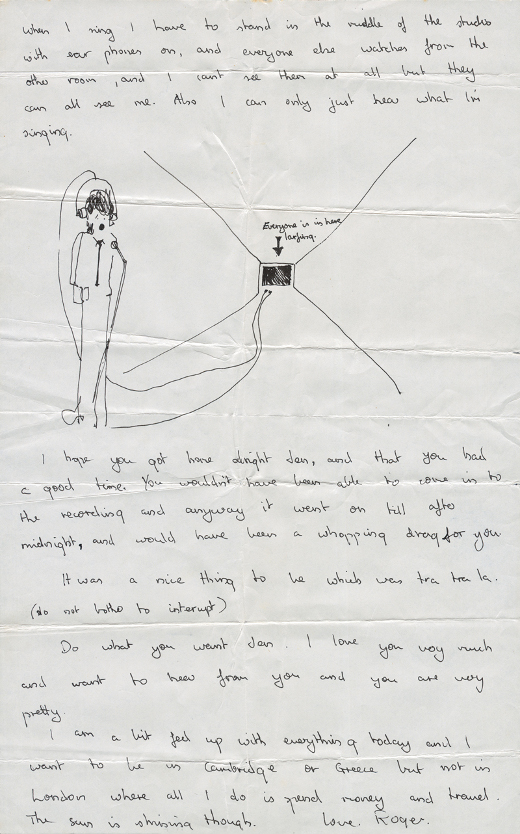 When I sing I have to stand in the middle of the studio
with ear phones on, and everyone else watches from the
other room, and I cant see them at all but they
can all see me. Also I can only just hear what I'm
singing.
Everyone is in here
larfing.
I hope you got home alright Jen, and that you had
a good time. You wouldn't have been able to come in to
the recording and anyway it went on till after
midnight, and would have been a whopping drag for you.
It was a nice thing to be which was tra tra la.
(do not bother to interupt)
Do what you want Jen. I love you very much
and want to hear from you and you are very
pretty.
I am a bit fed up with everything today and I
want to be in Cambridge or Greece but not in
London where all I do is spend money and travel.
The sun is shining though. Love Roger.